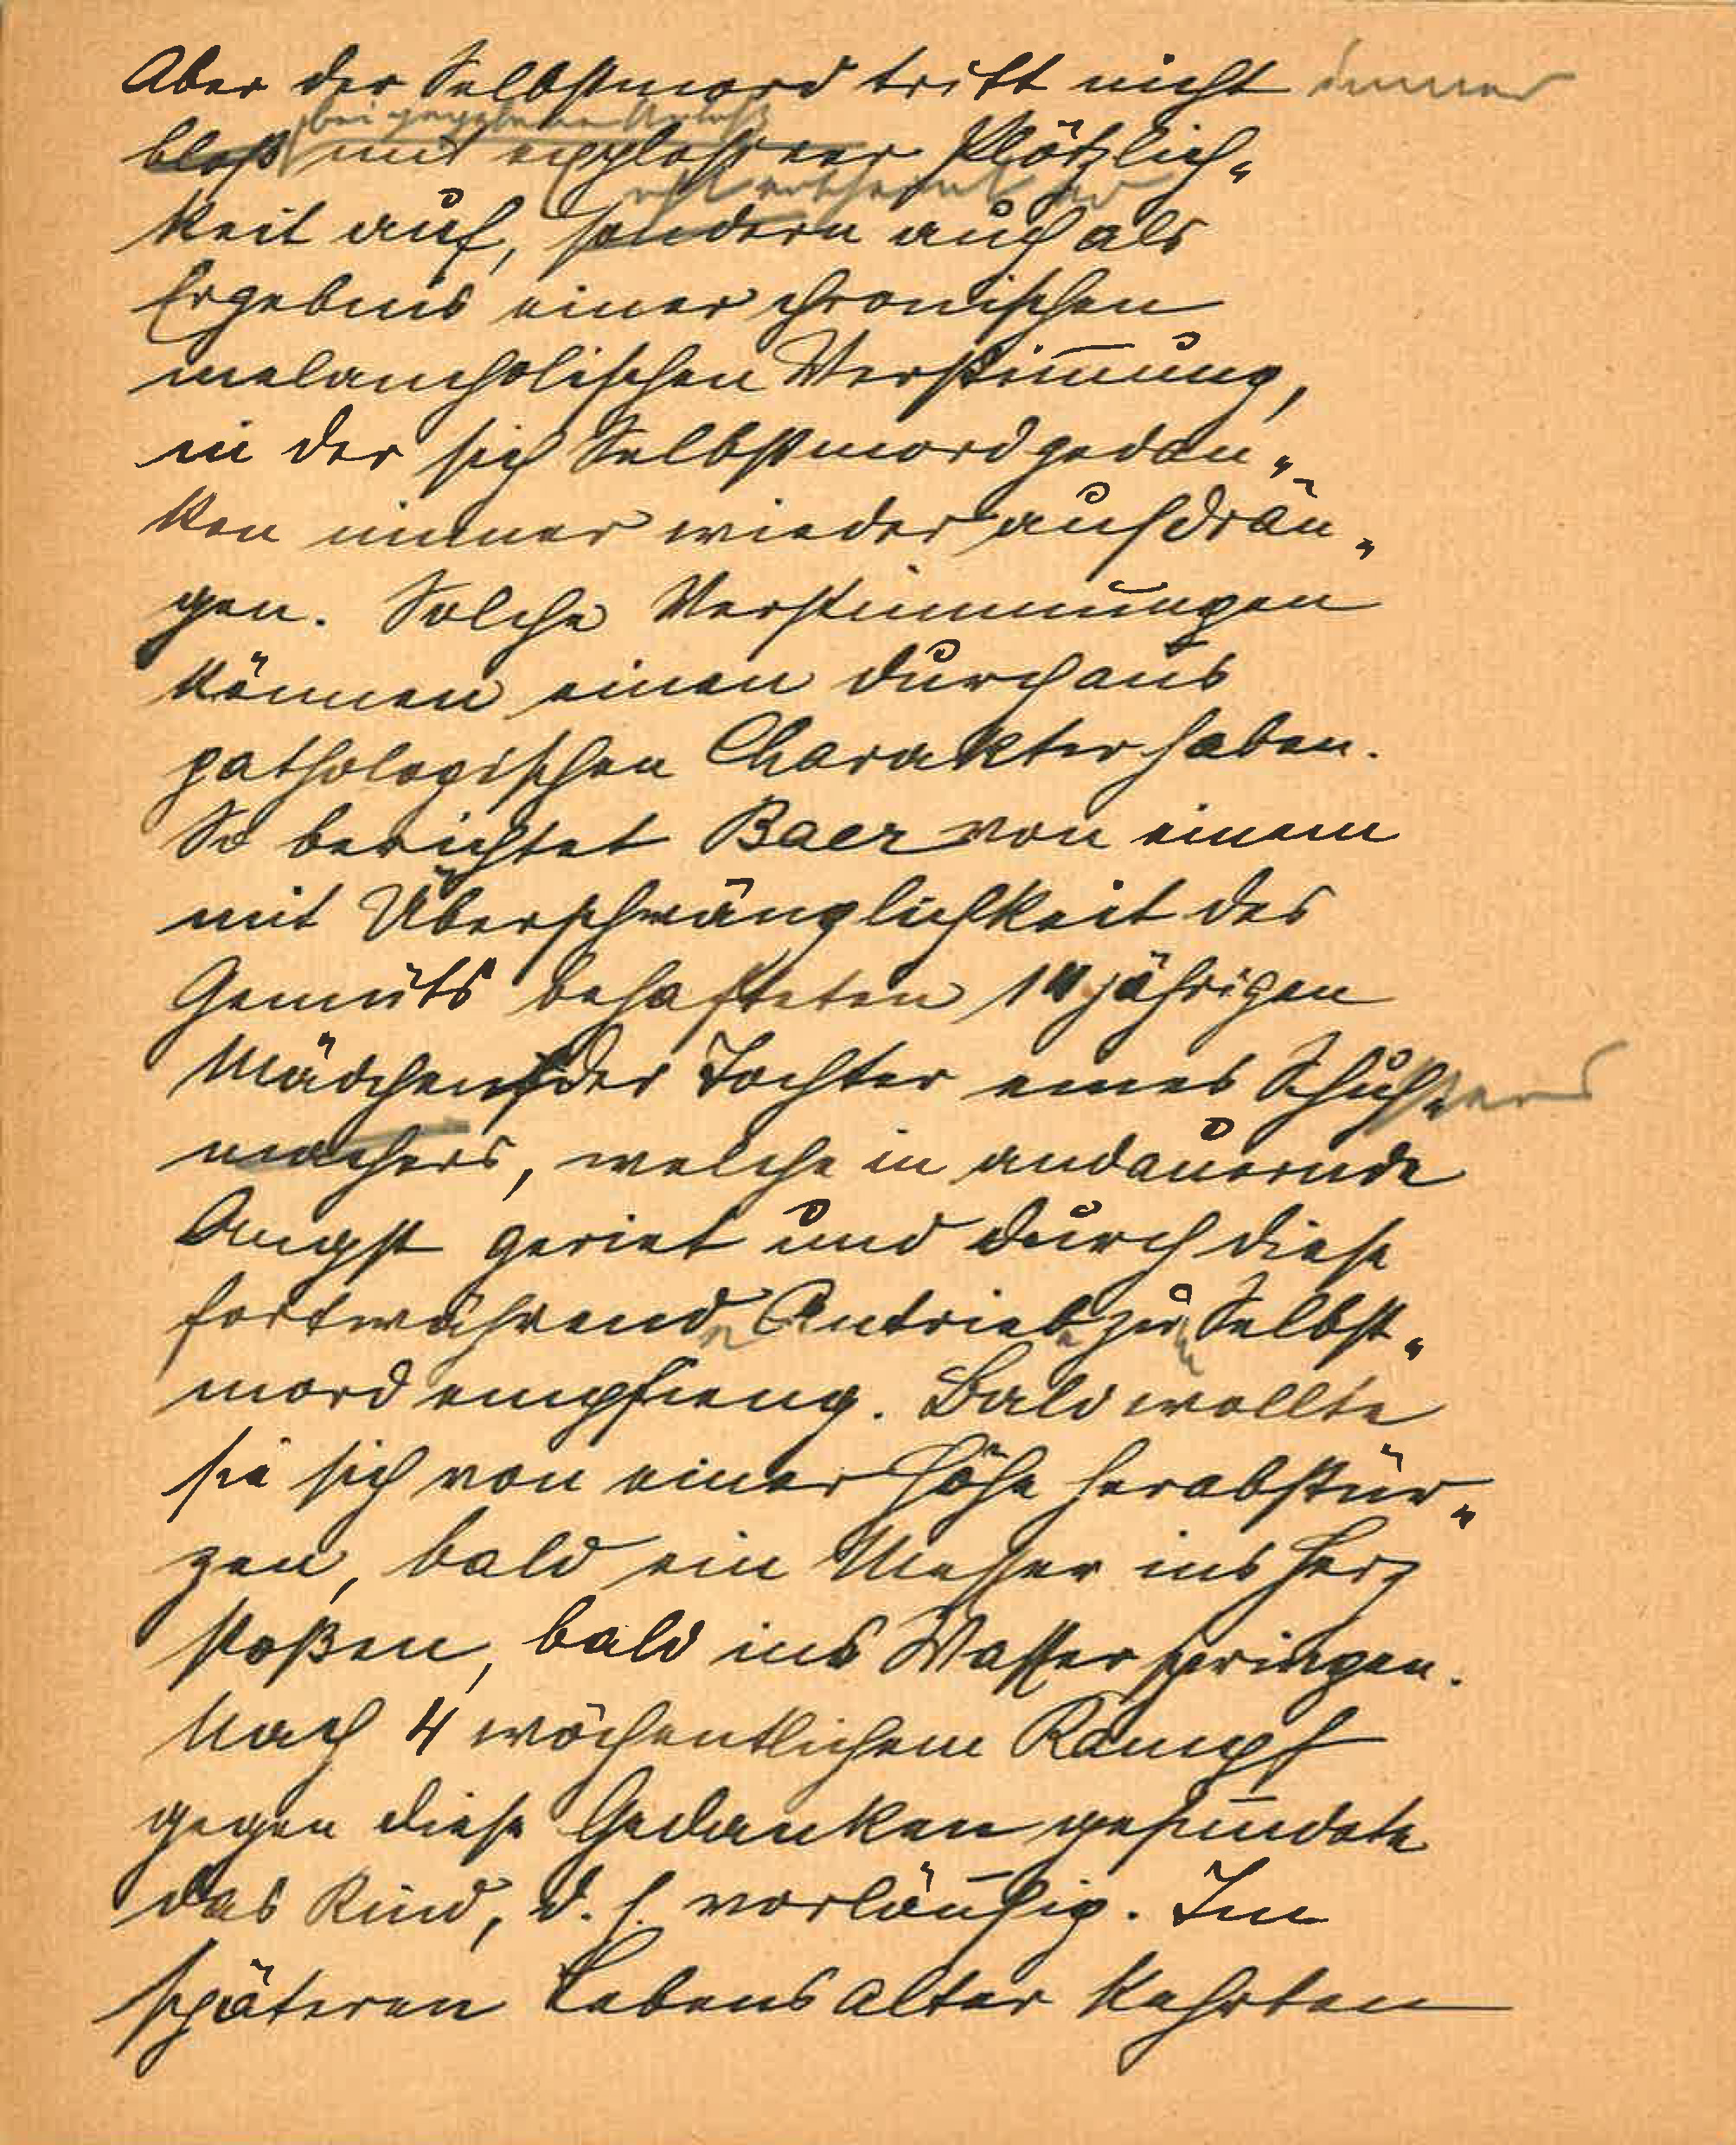 Aber der Selbstmord tritt nicht immer
bei gegebenem Anlaß
bloß mit explosiver Plötzlich„
oft erscheint er
keit auf, sondern auch als
Ergebnis einer chronischen
melancholischen Verstim̅ung,
in der sich Selbstmordgedan„
ken immer wieder aufdrän„
gen. Solche Verstimmungen
können einen durchaus
pathologischen Charakter haben.
So berichtet Baer von einem
mit Überschwänglichkeit des
Gemüts behafteten jährigen
Mädchen, der Tochter eines Schuh„sters
machers, welche in andauernde
Angst geriet und durch diese
fortwährend Antrieb zu Selbst„
mord empfieng. Bald wollte
sie sich von einer Höhe herabstür„
zen, bald ein Messer ins Herz
stoßen, bald ins Wasser springen.
Nach 4 wöchentlichem Kampf
gegen diese Gedanken gesundete
das Kind, d. h. vorläufig. Im
späteren Lebensalter kehrten